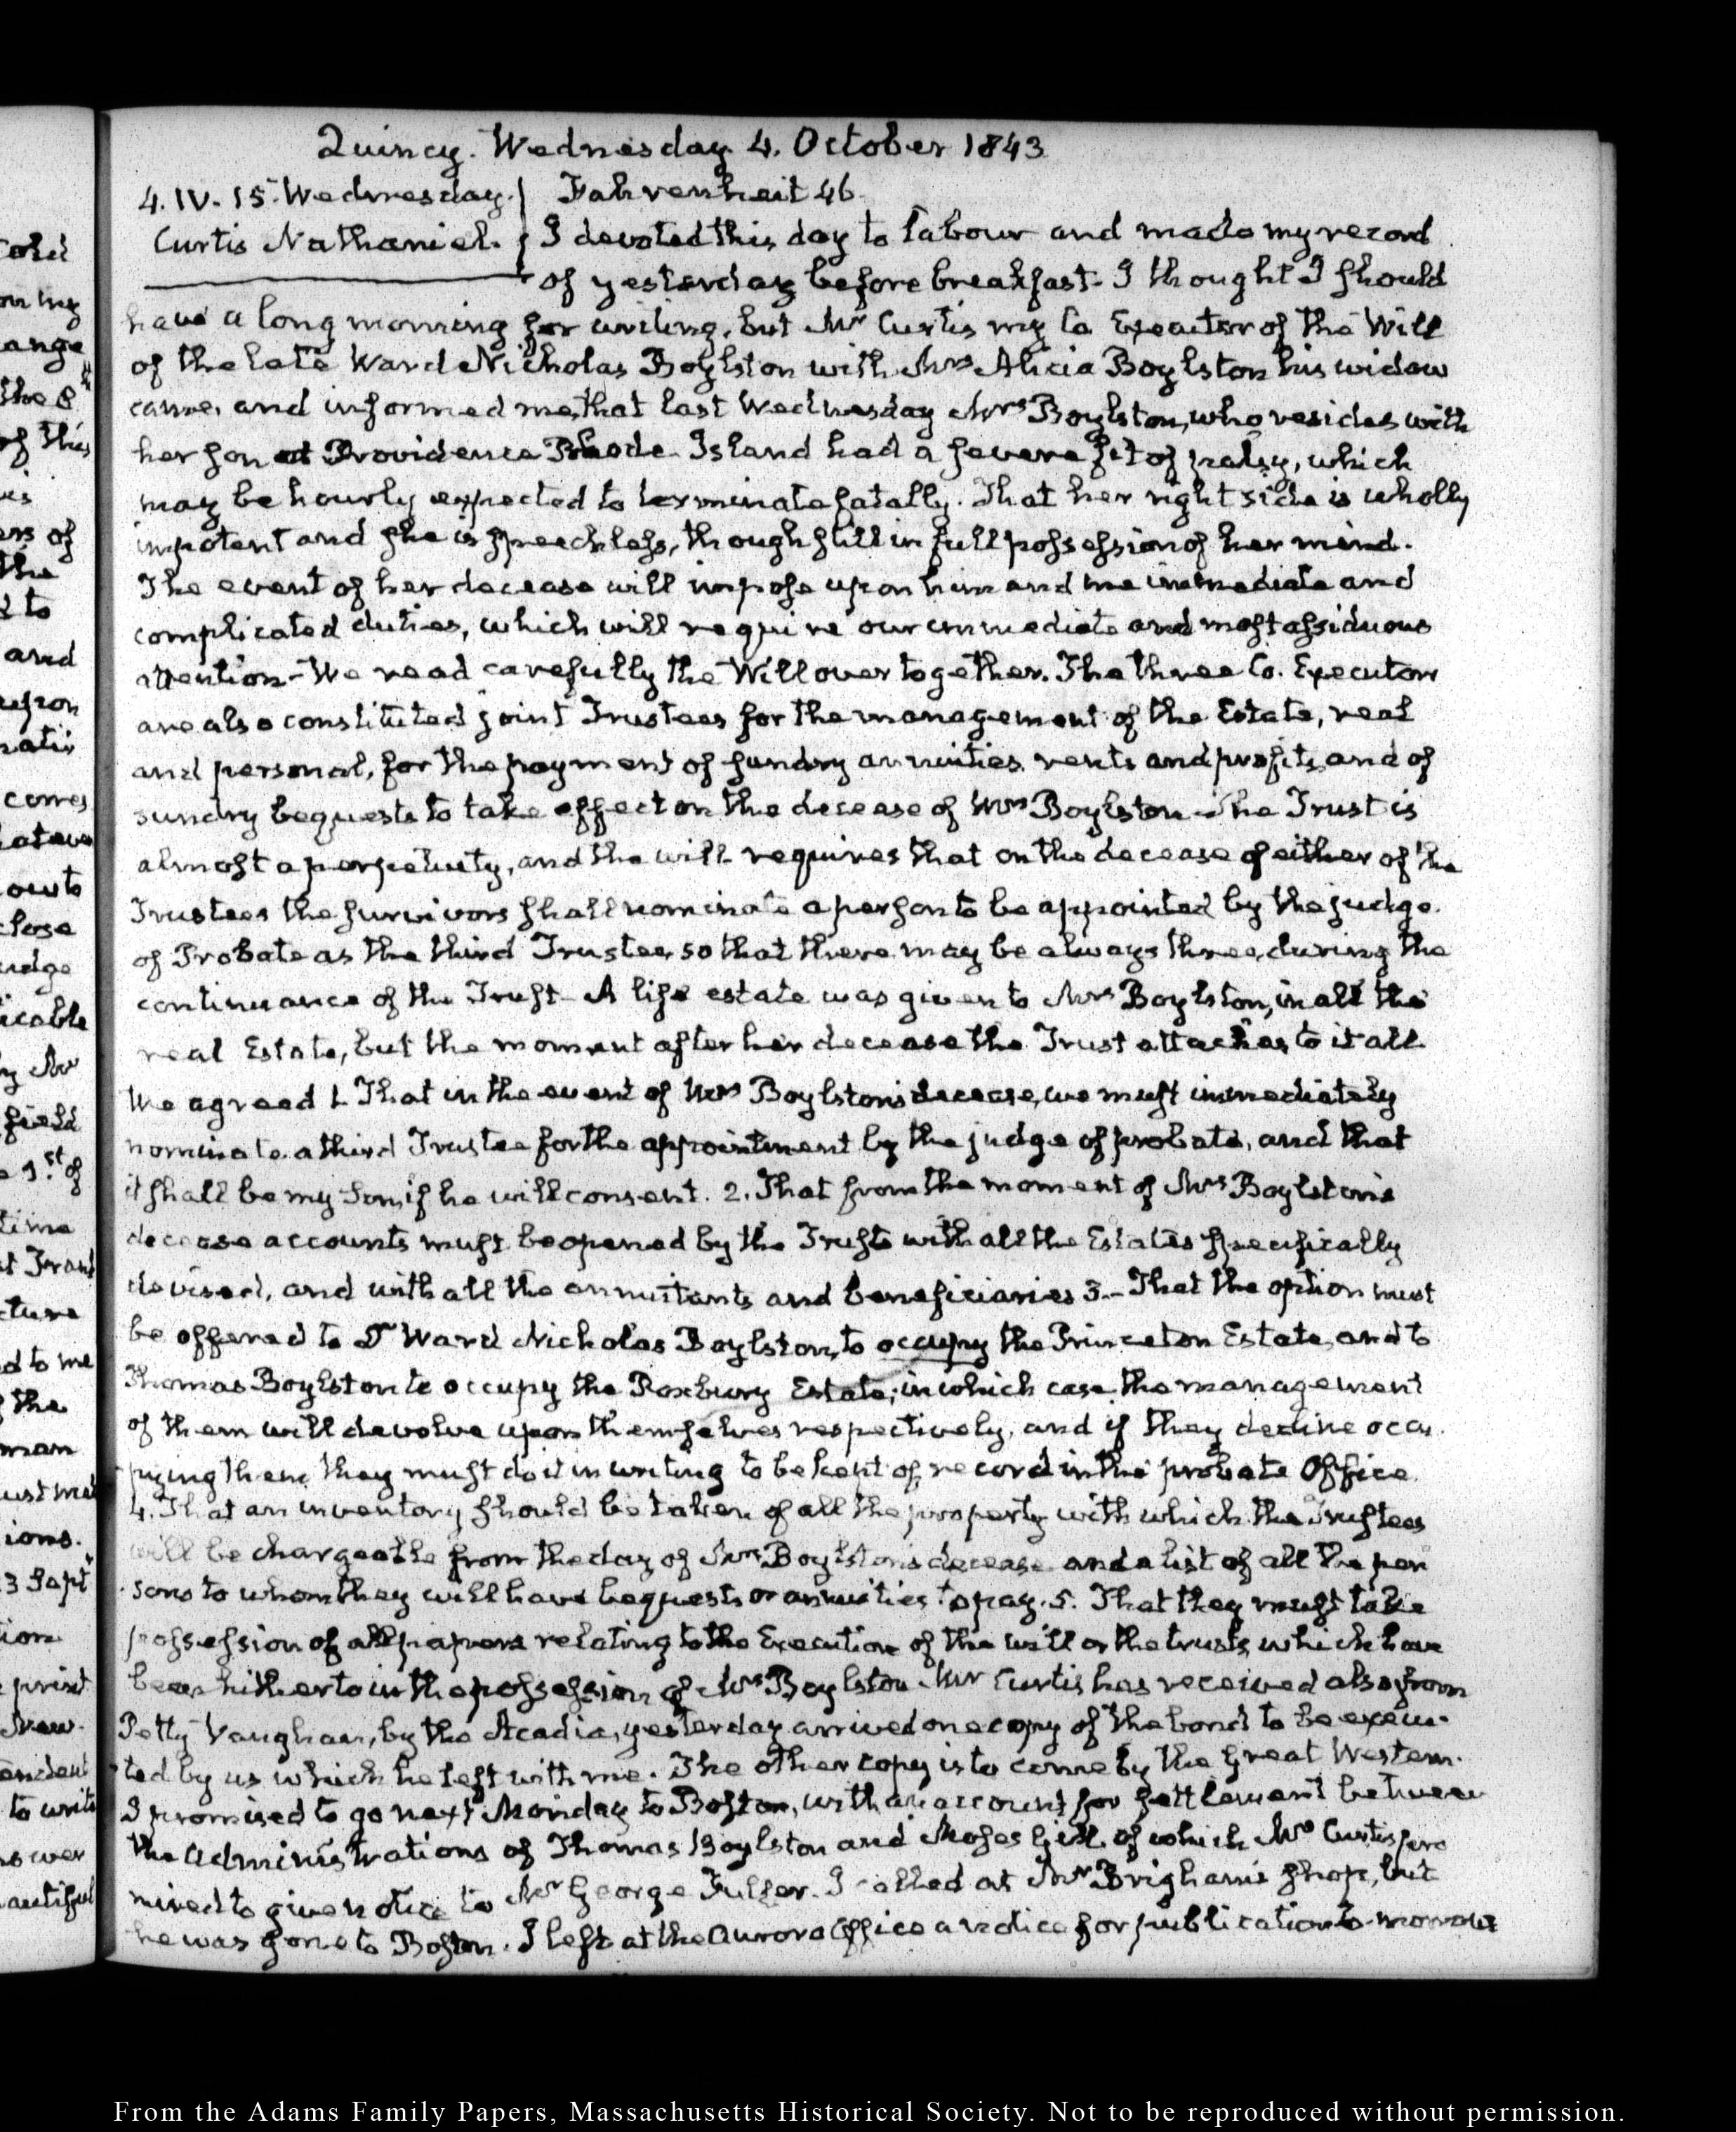 Quincy. Wednesday 4. October 1843
4. IV. 15. Wednesday. Fahrenheit 46.
Curtis Nathaniel. I devoted this day to labour and made my record
of yesterday before breakfast. I thought I should
have a long morning for writing, but Mr Curtis my Co Executor of the Will
of the late Ward Nicholas Boylston with Mrs Alicia Boylston his widow
came, and informed me that last Wednesday Mrs Boylston, who resides with
her son at Providence Rhode Island had a severe fit of palsy, which
may be hourly expected to terminate fatally. That her right side is wholly
impotent and she is speechless, though still in full possession of her mind.
The event of her decease will impose upon him and me immediate and
complicated duties, which will require our immediate and most assiduous
attention - We read carefully the Will over together. The three Co. Executors
are also constituted joint Trustees for the management of the Estate, real
and personal, for the payment of sundry annuities rents and profits, and of
sundry bequests to take effect on the decease of Mrs Boylston - The Trust is
almost a perpetuity, and the will requires that on the decease of either of the
Trustees the survivors shall nominate a person to be appointed by the judge
of Probate as the third Trustee, so that there may be always three, during the
continuance of the Trust - A life estate was given to Mrs Boylston, in all the
real Estate, but the moment after her decease the Trust attaches to it all.
We agreed 1. That in the event of Mrs Boylston's decease, we must immediately
nominate a third Trustee for the appointment by the judge of probate, and that
it shall be my Son, if he will consent. 2. That from the moment of Mrs Boylston's
decease accounts must be opened by the Trusts with all the Estates specifically
devised, and with all the annuitants and beneficiaries 3.- That the option must
be offered to Dr Ward Nicholas Boylston, to occupy the Princeton Estate, and to
Thomas Boylston to occupy the Roxbury Estate; in which case the management
of them will devolve upon themselves respectively, and if they decline occu-
pying them they must do it in writing to be kept of record in the probate Office
4. That an inventory should be taken of all the property with which the Trustees
will be chargeable from the day of Mrs Boylston's decease and a list of all the per
sons to whom they will have bequests or annuities to pay. 5. That they must take
possession of all papers relating to the Execution of the will or the trusts, which have
been hitherto in the possession of Mrs Boylston Mr Curtis has received also from
Petty Vaughan, by the Acadia, yesterday arrived one copy of the bond to be execu-
ted by us which he left with me. The other copy is to come by the Great Western.
I promised to go next Monday to Boston, with an account for settlement between
the administrations of Thomas Boylston and Moses Gill, of which Mr Curtis pro
mised to give notice to Mr George Fuller. I called at Mr Brigham's shop, but
he was gone to Boston. I left at the Aurora Office a notice for publication to-morrow
From the Adams Family Papers, Massachusetts Historical Society. Not to be reproduced without permission.